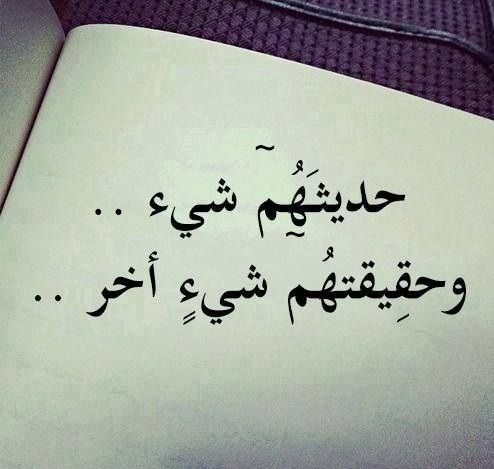 حديثهَُِم̃ شيء ..
وحقِيقتهُم̃ شيءٍ أخر ..